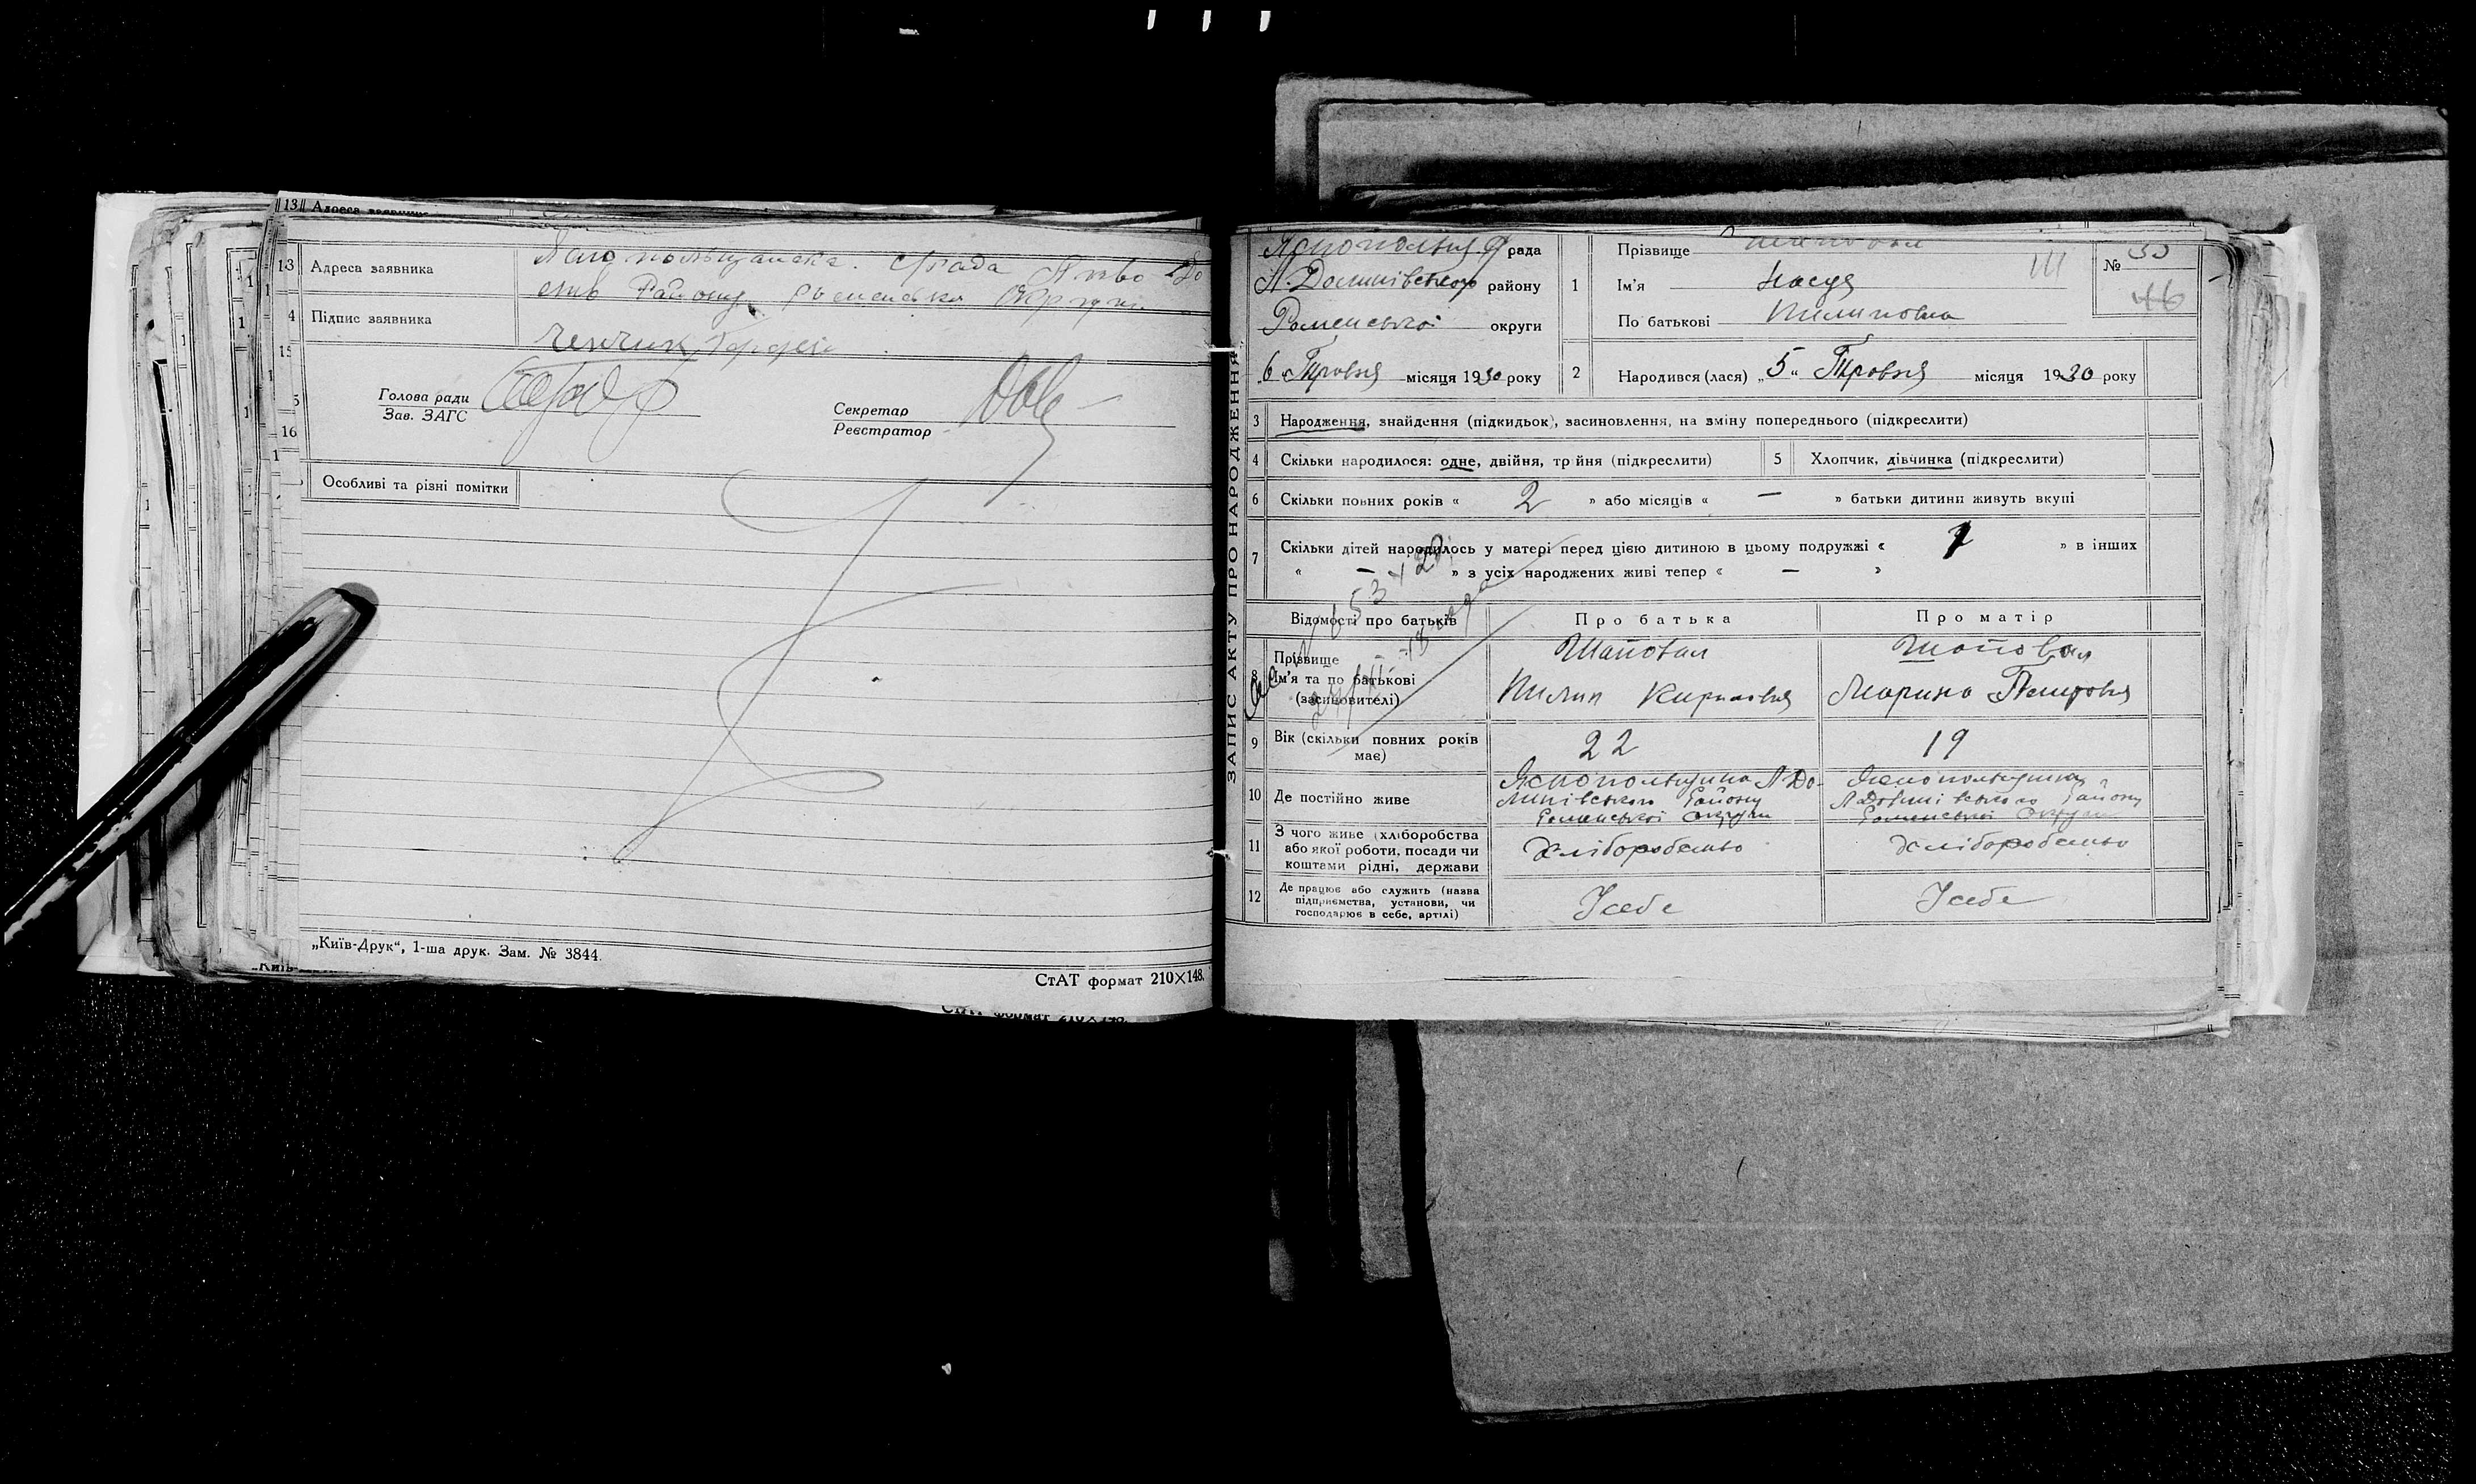 13 Адреса заявника
13 Адреса заявника
рада
Району Роменська Округи
4 Підпис заявника
Ченчик
15
Голова ради
Зав. ЗАГС
Секретар
Реєстратор
16
Особливі та різні помітки
„Київ-Друк“, 1-ша друк. Зам. № 3844.
СтАТ формат 210×148.
СтАТ формат 210×148.
ЗАПИС АКТУ ПРО НАРОДЖЕННЯ
рада
району
Роменської округи
„6“ Травня місяця 1930 року
1 Прізвище
Ім'я
По батькові Пилиповна
№ 46
2 Народився (лася) „5“ Травня місяця 1930 року
3 Народження, знайдення (підкидьок), засиновлення, на зміну попереднього (підкреслити)
4 Скільки народилося: одне, двійня, трійня (підкреслити)
5 Хлопчик, дівчинка (підкреслити)
6 Скільки повних років « 2 » або місяців « — » батьки дитини живуть вкупі
7 Скільки дітей народилось у матері перед цією дитиною в цьому подружжі « » в інших
« — » з усіх народжених живі тепер « — »
Відомості про батьків Про батька Про матір
8 Прізвище Шаповал Шаповал
Ім'я та по батькові Пилип Кирилович Марина Петровна
(засиновителі)
9 Вік (скільки повних років 22 19
має)
10 Де постійно живе
Яснопольщина Л До- Яснопольщина
линівського Району Л Долинівського Району
Роменської Округи Роменської Округи
11 З чого живе (хліборобства
або якої роботи, посади чи Хліборобство Хліборобство
коштами рідні, держави
12 Де працює або служить (назва
підприємства, установи, чи Усебе Усебе
господарює в себе, артілі)